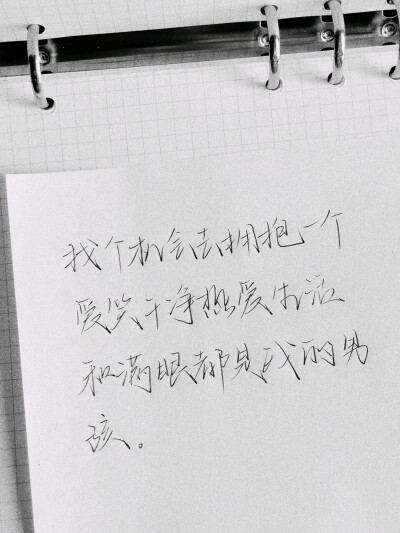 找个机会去拥抱一个
爱笑干净热爱生活
和满眼都是我的男
孩。